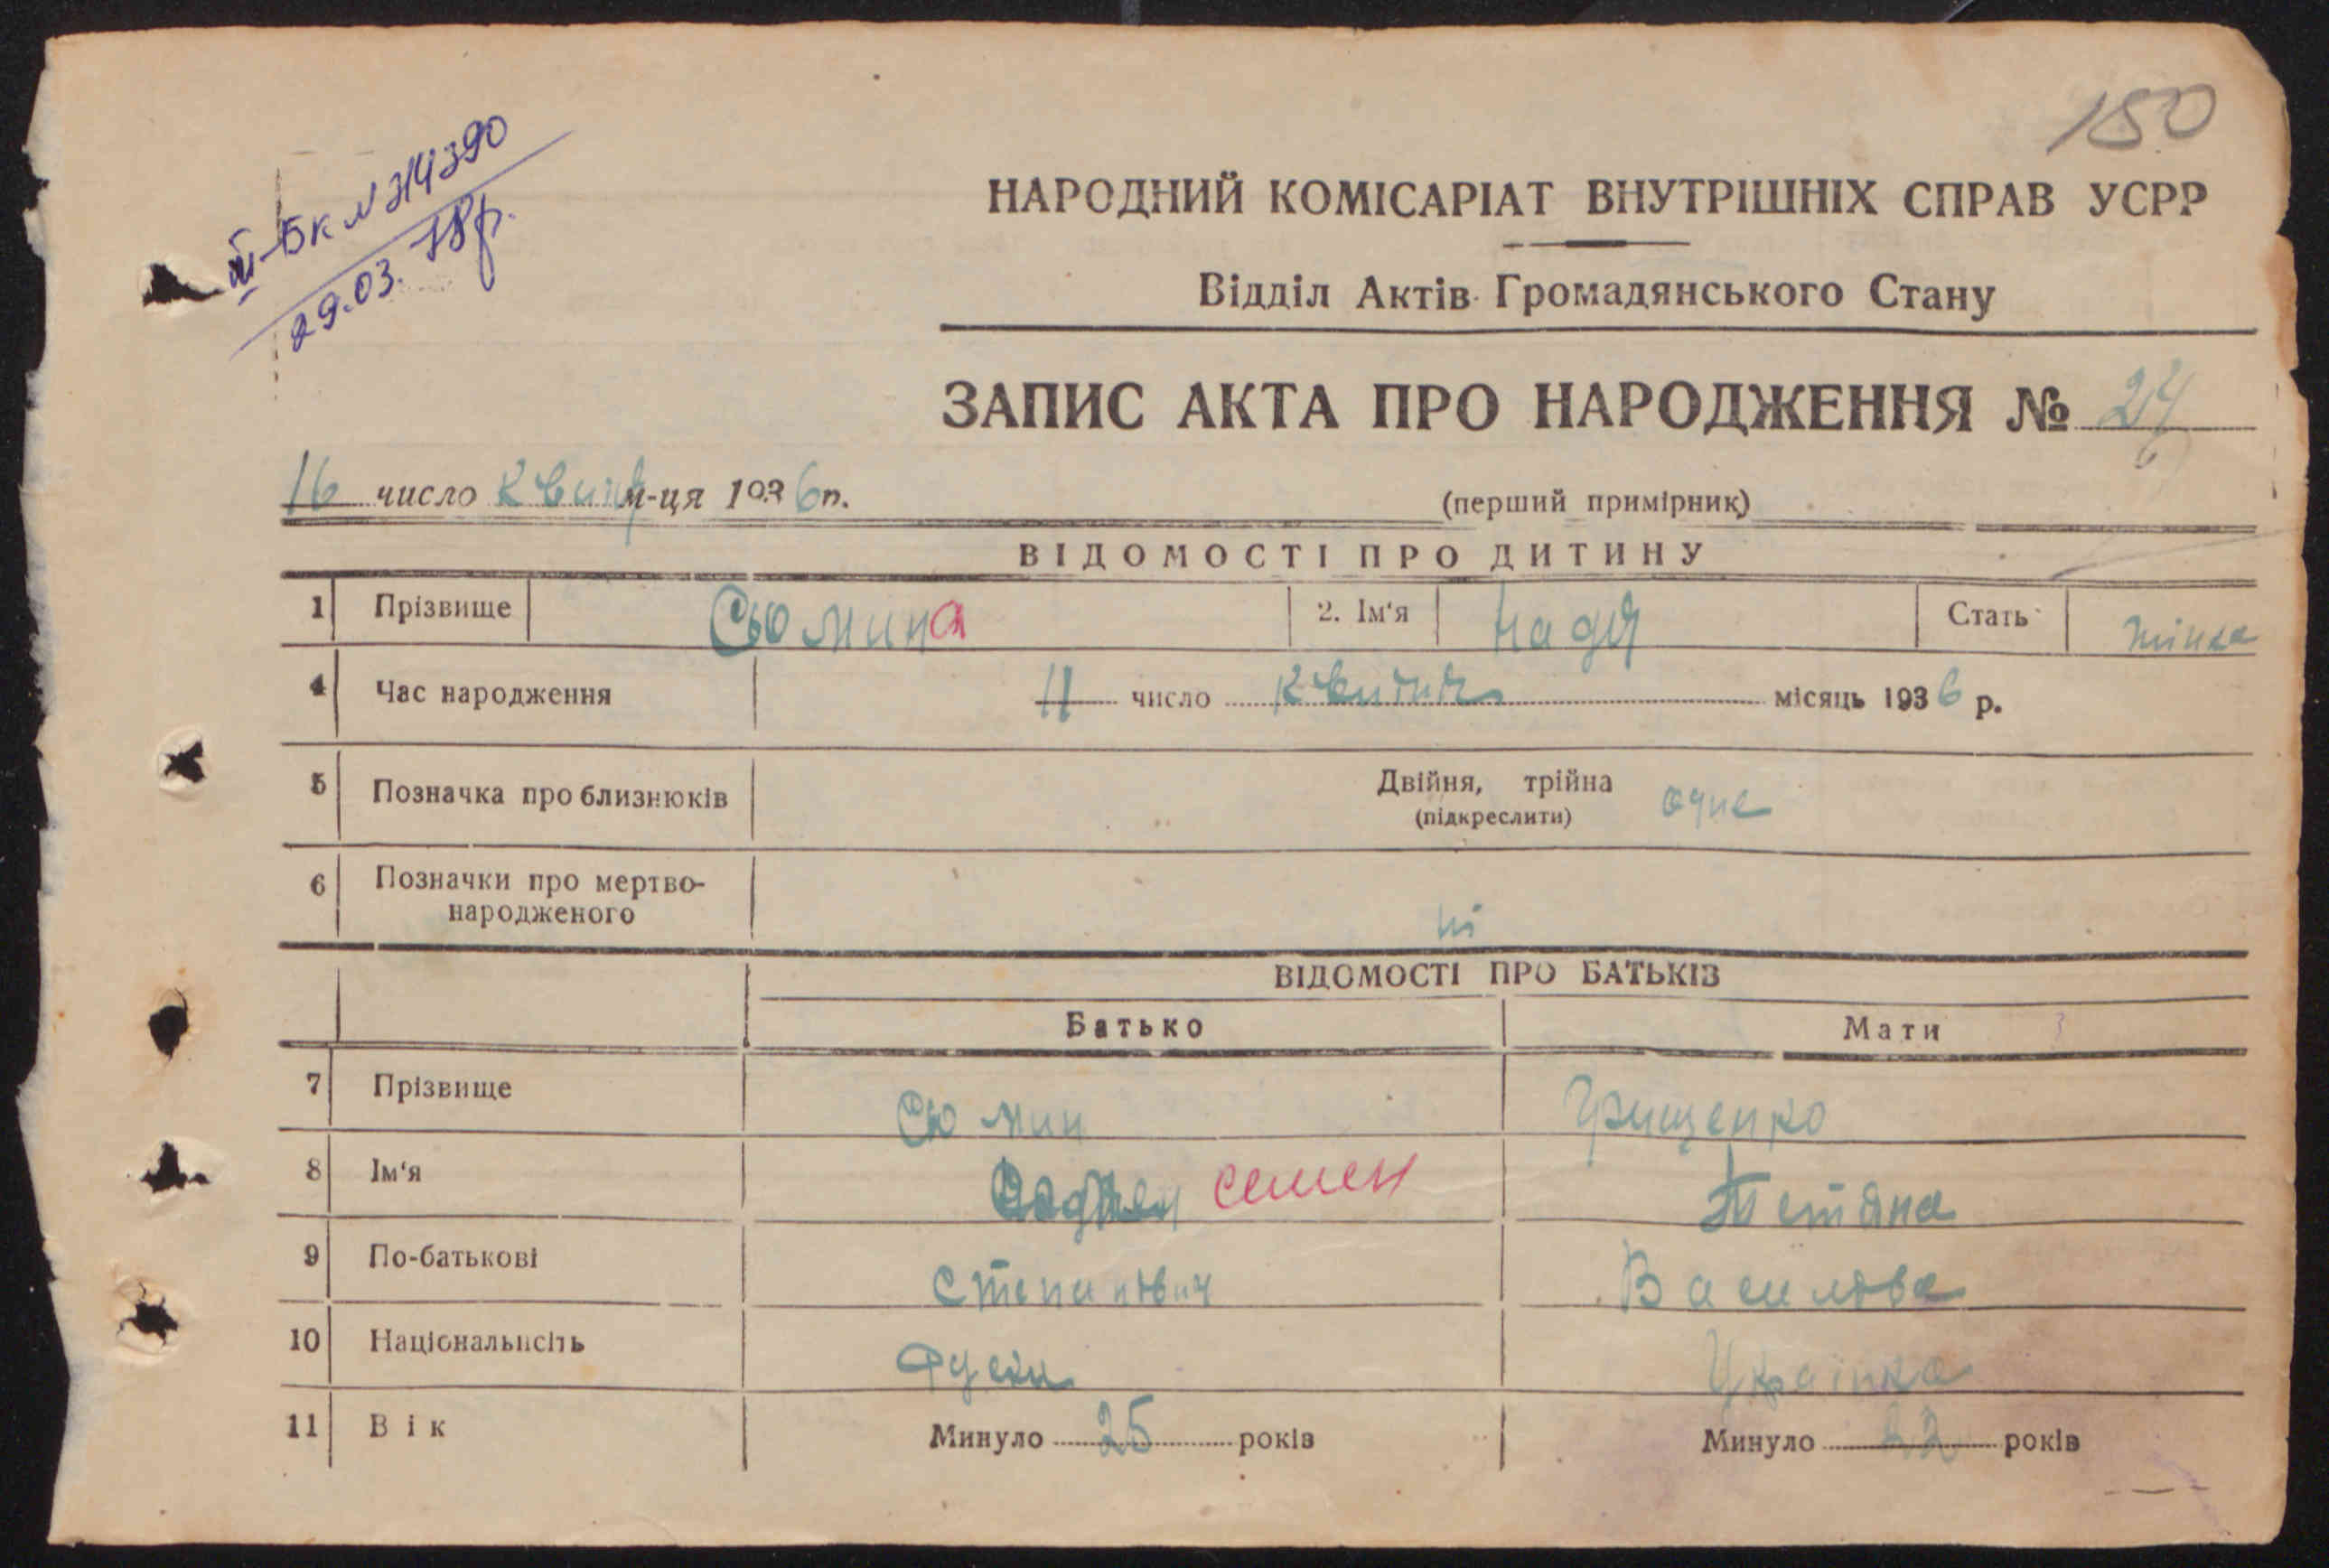 150
III-БК № 414390
29.03.78р.
НАРОДНИЙ КОМІСАРІАТ ВНУТРІШНІХ СПРАВ УСРР
Відділ Актів Громадянського Стану
ЗАПИС АКТА ПРО НАРОДЖЕННЯ № 24
16 число квітн м-ця 1936 р.
(перший примірник)
ВІДОМОСТІ ПРО ДИТИНУ
1 Прізвище Сьомина 2. Ім'я Надія Стать жінка
4 Час народження 11 число квітня місяць 1936 р.
5 Позначка про близнюків Двійня, трійна одне
(підкреслити)
6 Позначки про мертво-
народженого ні
ВІДОМОСТІ ПРО БАТЬКІВ
Батько Мати
7 Прізвище Сьомин Грищенко
8 Ім'я семен Тетяна
9 По-батькові Степанович Василівна
10 Національність Українка
11 Вік Минуло 25 років Минуло 22 років